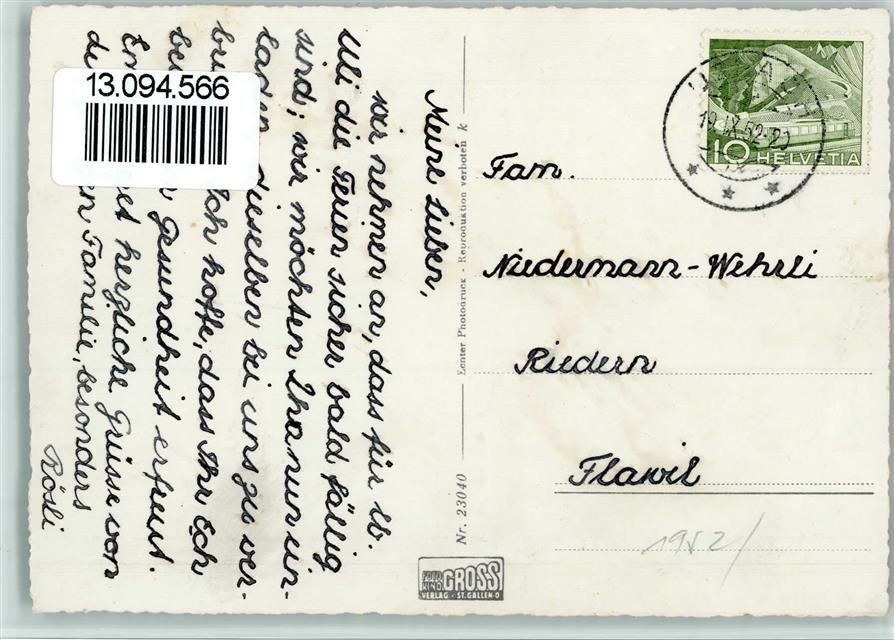 13.094.566
Meine Lieben,
wir nehmen an, dass für lb.
Uli die Ferien sicher bald fällig
sind; wir möchten Ihn nun ein-
laden dieselben bei uns zu ver-
Ich hoffe, dass Ihr Euch
Gesundheit erfreut.
herzliche Grüsse von
en Familie, besonders
Rösli
Echter Photodruck - Reproduktion verboten k
Nr. 23040
GROSS
VERLAG · ST. GALLEN O
10 HELVETIA
19.IX.52-20
Fam.
Niedermann-Wehrli
Riedern
Flawil
1952/